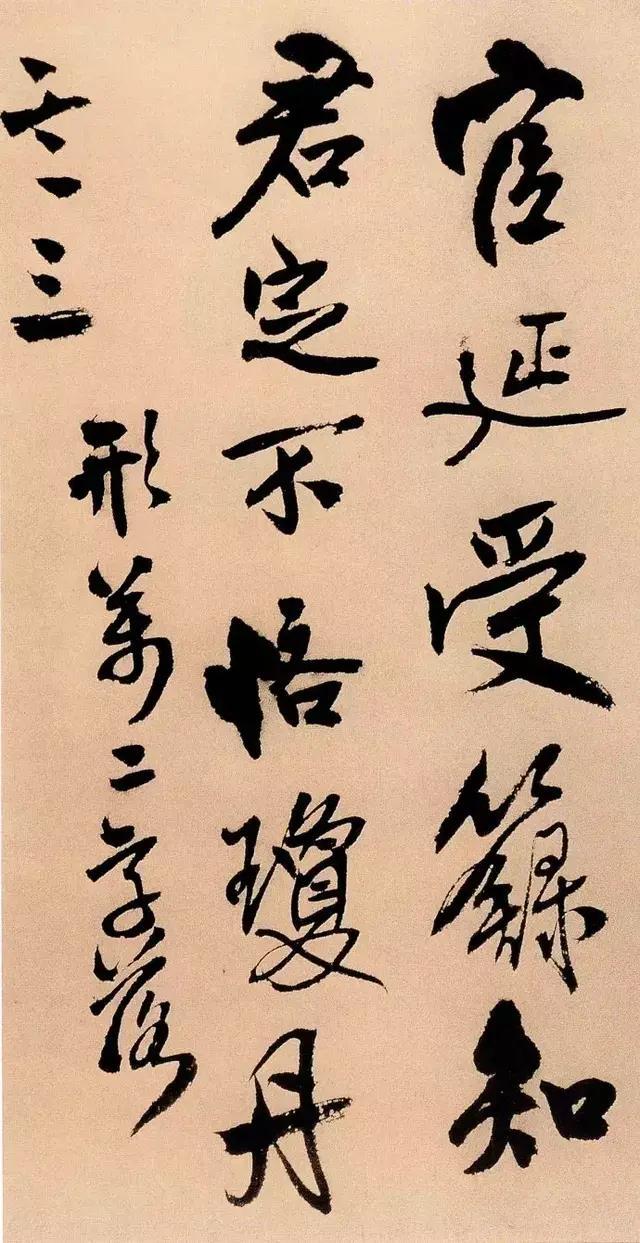 官延受籙知
君定不悟瓊丹
一三
形萬二字落